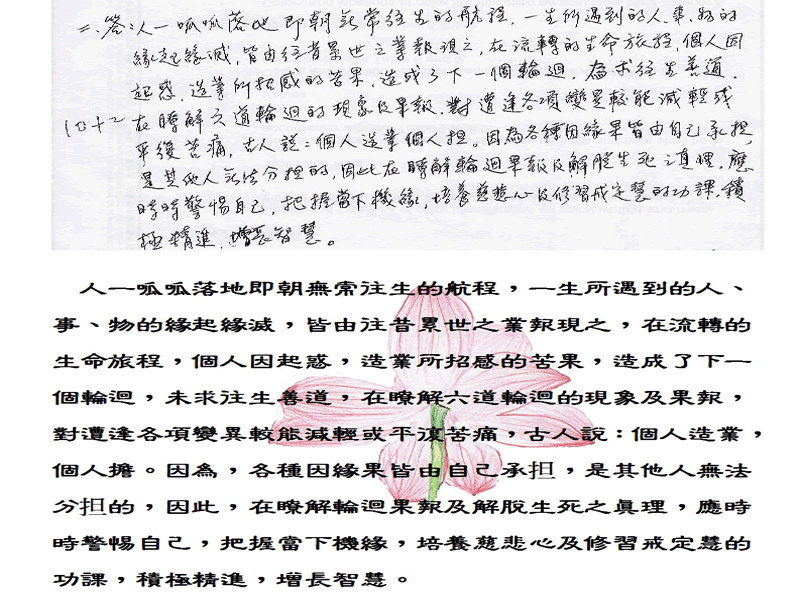 二、答:人一呱呱落地即朝無常往生的航程,一生所遇到的人、事、物的
緣起緣滅,皆由往昔累世之業報現之,在流轉的生命旅程,個人因
起惑、造業所招感的苦果,造成了下一個輪迴,為求往生善道,
10+2 在瞭解六道輪迴的現象及果報,對遭逢各項變異較能減輕或
平復苦痛,古人說:個人造業個人担。因為各種因緣果皆由自己承担,
是其他人無法分担的,因此在瞭解輪迴果報及解脫生死之真理,應
時時警惕自己,把握當下機緣,培養慈悲心及修習戒定慧的功課,積
極精進,增長智慧。
人一呱呱落地即朝無常往生的航程,一生所遇到的人、
事、物的緣起緣滅,皆由往昔累世之業報現之,在流轉的
生命旅程,個人因起惑,造業所招感的苦果,造成了下一
個輪迴,未求往生善道,在瞭解六道輪迴的現象及果報,
對遭逢各項變異較能減輕或平復苦痛,古人說:個人造業,
個人擔。因為,各種因緣果皆由自己承担,是其他人無法
分担的,因此,在瞭解輪迴果報及解脫生死之真理,應時
時警惕自己,把握當下機緣,培養慈悲心及修習戒定慧的
功課,積極精進,增長智慧。